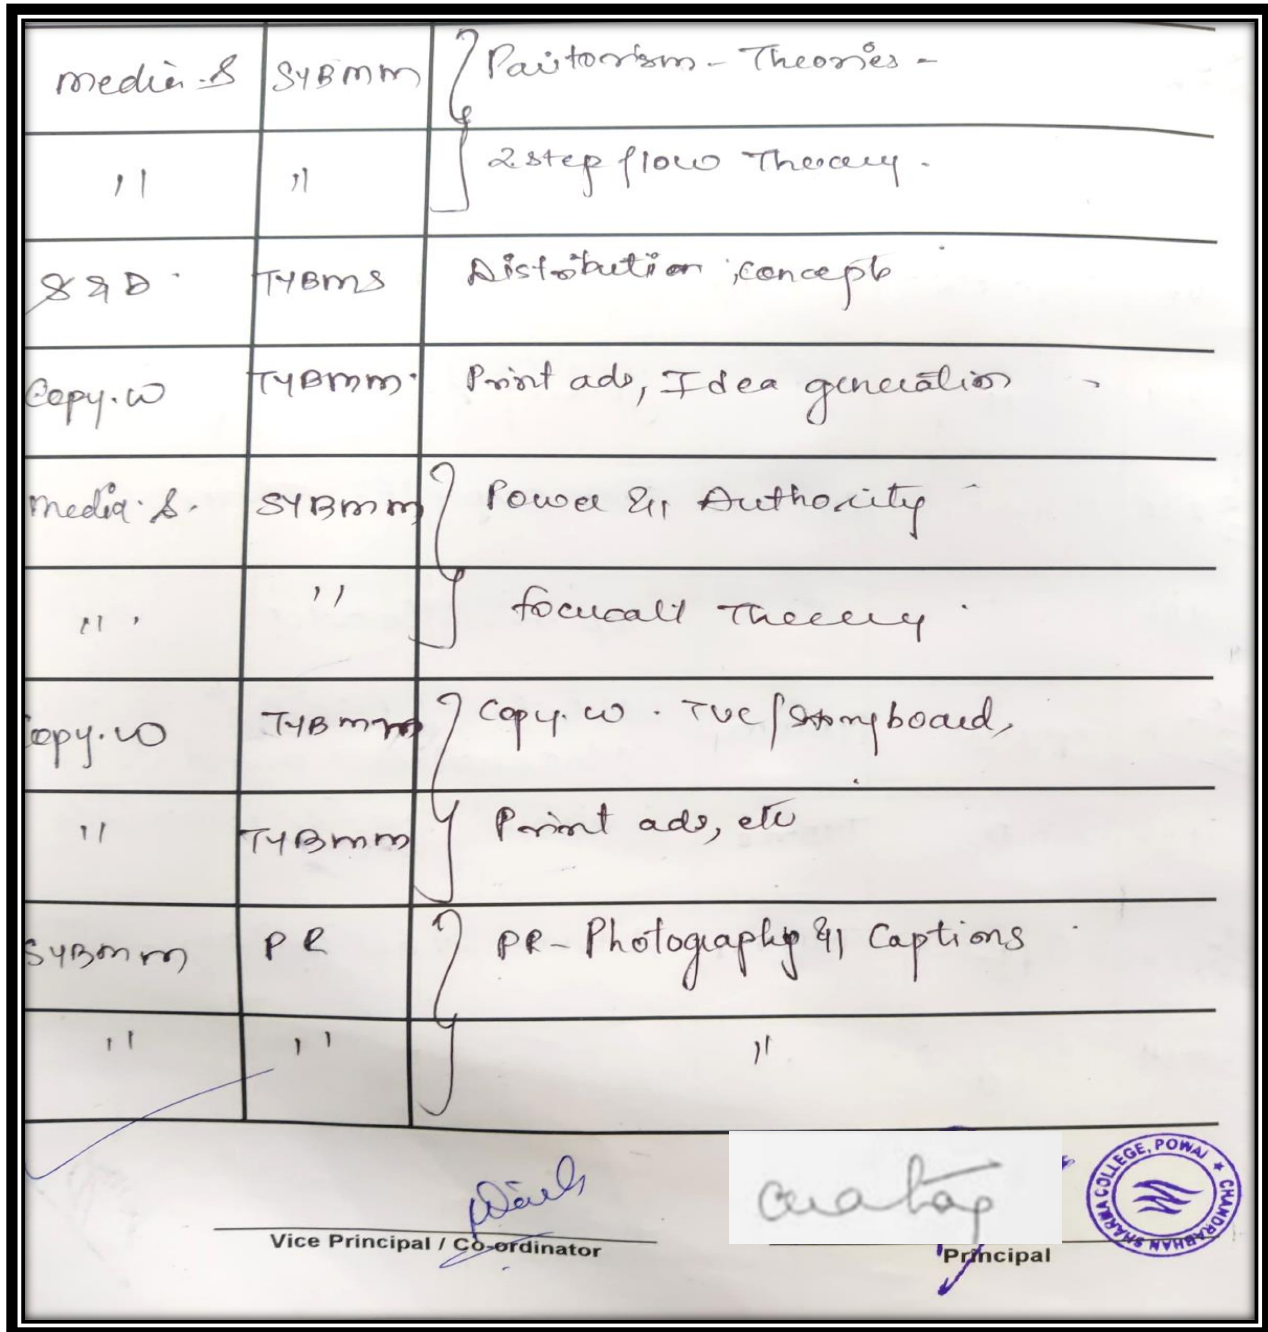 Media.S SYBMM Pairtorism - Theories -
" " 2 step flow Theory.
S & D TYBMS Distribution, concept
Copy.W TYBMM. Print ads, Idea generation
Media.S. SYBMM Power & Authority
" " focucalt Theory
Copy.W TYBMM Copy.W. TVC/Storyboard,
" TYBMM Print ads, etc
SYBMM PR PR- Photography & Captions
" " "
Vice Principal / Co-ordinator
Principal
CHANDRABHAN SHARMA COLLEGE, POWAI